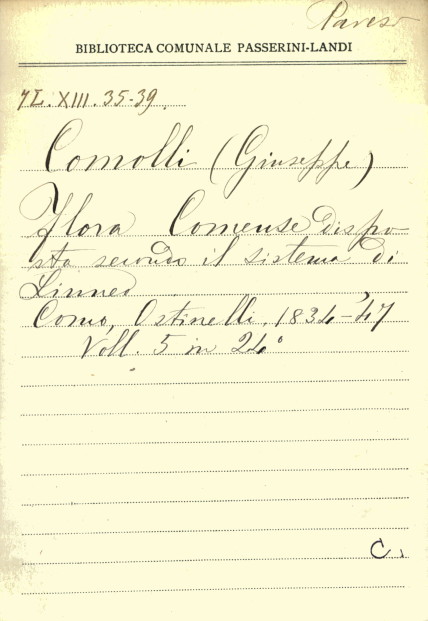 Pavesi
BIBLIOTECA COMUNALE PASSERINI-LANDI
7L.XIII.35-39.
Comolli (Giuseppe)
Flora Comense dispo-
sta secondo il sistema di
Linneo
Como, Ostinelli, 1834-'47
Voll. 5 in 24°
C.